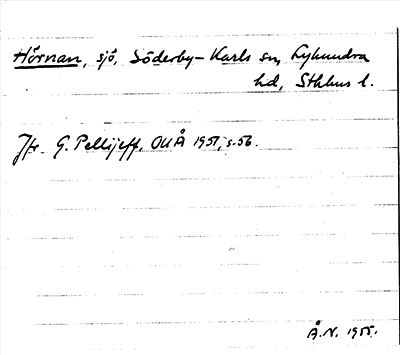 Hörnan, sjö, Söderby-Karls sn, Lyhundra
hd, Sthlms l.
Jfr G. Pellijeff, OUÅ 1951, s. 56.
Å.N. 1955.